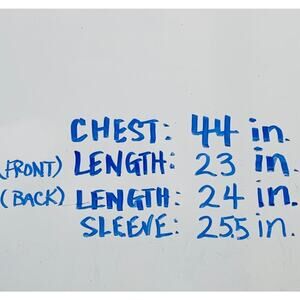 CHEST: 44 in.
(FRONT) LENGTH: 23 in.
(BACK) LENGTH: 24 in.
SLEEVE: 25.5 in.